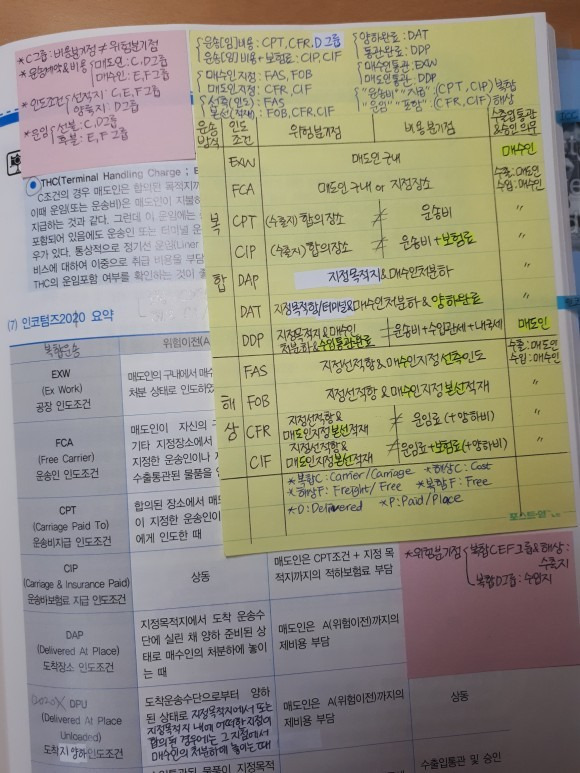 *C그룹: 비용분기점 ≠ 위험분기점
*운송계약&비용 { 매도인: C, D그룹
매수인: E, F그룹
*인도조건 { 선적지: C, E, F그룹
양륙지: D그룹
*운임 { 선불: C, D그룹
후불: E, F그룹
{ 운송(임)비용: CPT, CFR, D그룹
운송(임)비용+보험료: CIP, CIF
{ 매수인지정: FAS, FOB
매도인지정: CFR, CIF
{ 선측(인도): FAS
본선(적재): FOB, CFR, CIF
{ 양하완료: DAT
통관완료: DDP
{ 매수인통관: EXW
매도인통관: DDP
{ "운송비" "지급" (CPT, CIP) 복합
"운임" "포함" (CFR, CIF) 해상
운송방식 인도조건 위험분기점 비용분기점 수출입통관&승인 의무
복합
EXW 매도인 구내 매수인
FCA 매도인 구내 or 지정장소 수출: 매도인 수입: 매수인
CPT (수출지) 합의장소 ≠ 운송비 〃
CIP (수출지) 합의장소 ≠ 운송비+보험료 〃
DAP 지정목적지&매수인처분하 〃
DAT 지정목적항/터미널&매수인처분하&양하완료 〃
DDP 지정목적지&매수인처분하&수입통관완료 ≠ 운송비+수입관세+내국세 매도인
해상
FAS 지정선적항&매수인지정선측인도 수출: 매도인 수입: 매수인
FOB 지정선적항&매수인지정본선적재 〃
CFR 지정선적항&매도인지정본선적재 ≠ 운임료(+양하비) 〃
CIF 지정선적항&매도인지정본선적재 ≠ 운임료+보험료(+양하비) 〃
*복합C: Carrier/Carriage *해상C: Cost
*해상F: Freight/Free *복합F: Free
*D: Delivered *P: Paid/Place
포스트-잇
THC(Terminal Handling Charge ;
C조건의 경우 매도인은 합의된 목적지까
이때 운임(또는 운송비)은 매도인이 지불하
지급하는 것과 같다. 그런데 이 운임에는
포함되어 있음에도 운송인 또는 터미널 운
우가 있다. 통상적으로 정기선 운임(Liner
비스에 대하여 이중으로 취급 비용을 부담
THC의 운임포함 여부를 확인하는 것이
(7) 인코텀즈2020 요약
복합운송 위험이전(A
EXW
(Ex Work)
공장 인도조건
매도인의 구내에서 매수
처분 상태로 인도하였
FCA
(Free Carrier)
운송인 인도조건
매도인이 자신의 구
기타 지정장소에서
지정한 운송인이나
수출통관된 물품을
CPT
(Carriage Paid To)
운송비지급 인도조건
합의된 장소에서 매도
이 지정한 운송인이
에게 인도한 때
CIP
(Carriage & Insurance Paid)
운송비보험료 지급 인도조건
상동
매도인은 CPT조건 + 지정 목
적지까지의 적하보험료 부담
*위험분기점 { 복합CEF그룹&해상: 수출지
복합D그룹: 수입지
DAP
(Delivered At Place)
도착장소 인도조건
지정목적지에서 도착 운송수
단에 실린 채 양하 준비된 상
태로 매수인의 처분하에 놓이
는 때
매도인은 A(위험이전)까지의
제비용 부담
2020X DPU
(Delivered At Place
Unloaded)
도착지양하인도조건
도착운송수단으로부터 양하
된 상태로 지정목적지에서 또는
지정목적지 내에 어떠한 지점이
합의된 경우에는 그 지점에서
매수인의 처분하에 놓이는 때
매도인은 A(위험이전)까지의
제비용 부담
상동
수입통관된 물품이 지정목적
수출입통관 및 승인